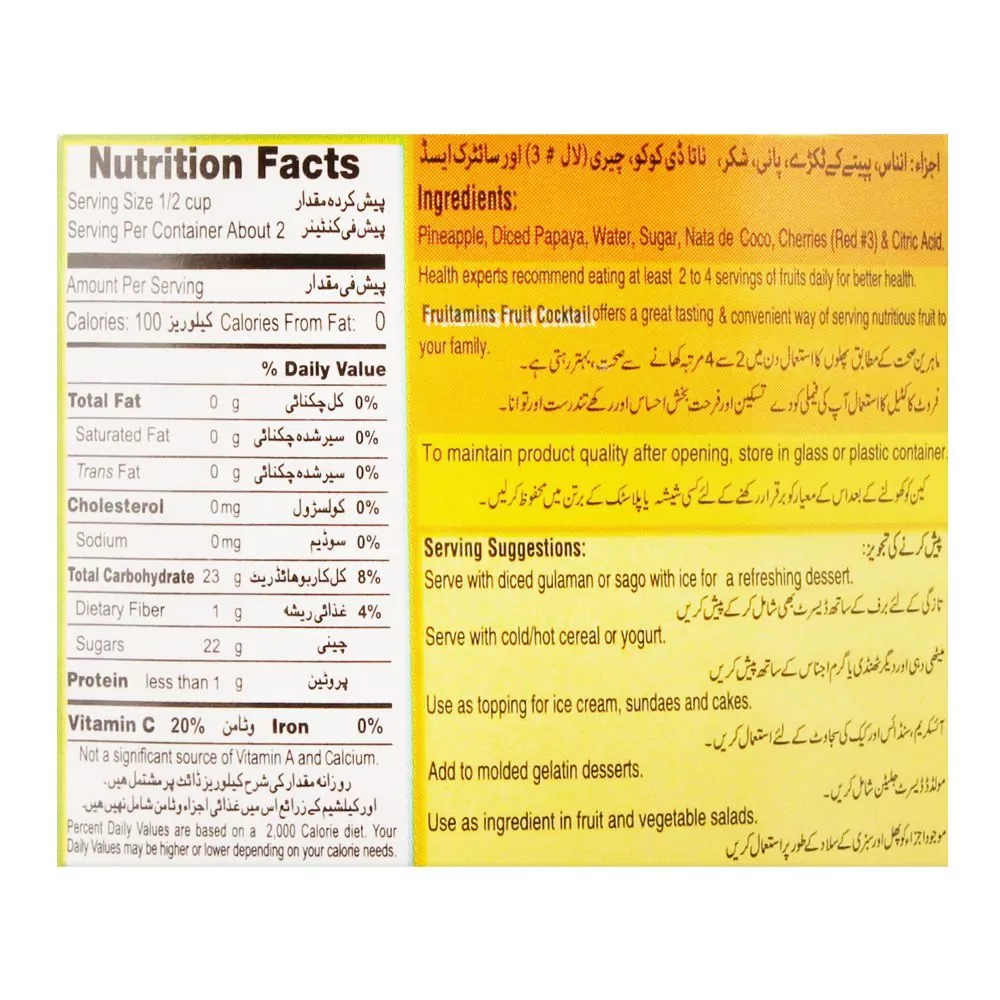 Nutrition Facts
Serving Size 1/2 cup پیش کردہ مقدار
Serving Per Container About 2 پیش فی کنٹینر
Amount Per Serving پیش فی مقدار
Calories: 100 کیلوریز Calories From Fat: 0
% Daily Value
Total Fat 0 g کل چکنائی 0%
Saturated Fat 0 g سیر شدہ چکنائی 0%
Trans Fat 0 g سیر شدہ چکنائی 0%
Cholesterol 0mg کولسزول 0%
Sodium 0mg سوڈیم 0%
Total Carbohydrate 23 g کل کاربوہائڈریٹ 8%
Dietary Fiber 1 g غذائی ریشہ 4%
Sugars 22 g چینی
Protein less than 1 g پروٹین
Vitamin C 20% وٹامن Iron 0%
Not a significant source of Vitamin A and Calcium.
روزانہ مقدار کی شرح کیلوریز ڈائٹ پر مشتمل ھیں۔
اور کیلشیم کے زرائع اس میں غذائی اجزاء وٹامن شامل نہیں ھیں۔
Percent Daily Values are based on a 2,000 Calorie diet. Your
Daily Values may be higher or lower depending on your calorie needs.
اجزاء: انناس، پپیتے کے ٹکڑے، پانی، شکر، ناتا ڈی کوکو، چیری (لال # 3) اور سائٹرک ایسڈ
Ingredients:
Pineapple, Diced Papaya, Water, Sugar, Nata de Coco, Cherries (Red #3) & Citric Acid.
Health experts recommend eating at least 2 to 4 servings of fruits daily for better health.
Fruitamins Fruit Cocktail offers a great tasting & convenient way of serving nutritious fruit to
your family.
ماہرین صحت کے مطابق پھلوں کا استعمال دن میں 2 سے 4 مرتبہ کھانے سے صحت، بہتر رہتی ہے۔
فروٹ کاکٹیل کا استعمال آپ کی فیملی کو دے تسکین اور فرحت بخش احساس اور رکھے تندرست اور توانا۔
To maintain product quality after opening, store in glass or plastic container.
کین کو کھولنے کے بعد اس کے معیار کو برقرار رکھنے کے لئے کسی شیشہ یا پلاسٹک کے برتن میں محفوظ کر لیں۔
Serving Suggestions:
پیش کرنے کی تجویز:
Serve with diced gulaman or sago with ice for a refreshing dessert.
تازگی کے لئے برف کے ساتھ ڈیسرٹ بھی شامل کر کے پیش کریں
Serve with cold/hot cereal or yogurt.
میٹھی دہی اور دیگر ٹھنڈی یا گرم اجناس کے ساتھ پیش کریں
Use as topping for ice cream, sundaes and cakes.
آئسکریم، سنڈائس اور کیک کی سجاوٹ کے لئے استعمال کریں۔
Add to molded gelatin desserts.
مولڈڈ ڈیسرٹ جلیٹن شامل کریں۔
Use as ingredient in fruit and vegetable salads.
موجود اجزاء کو پھل اور سبزی کے سلاد کے طور پر استعمال کریں